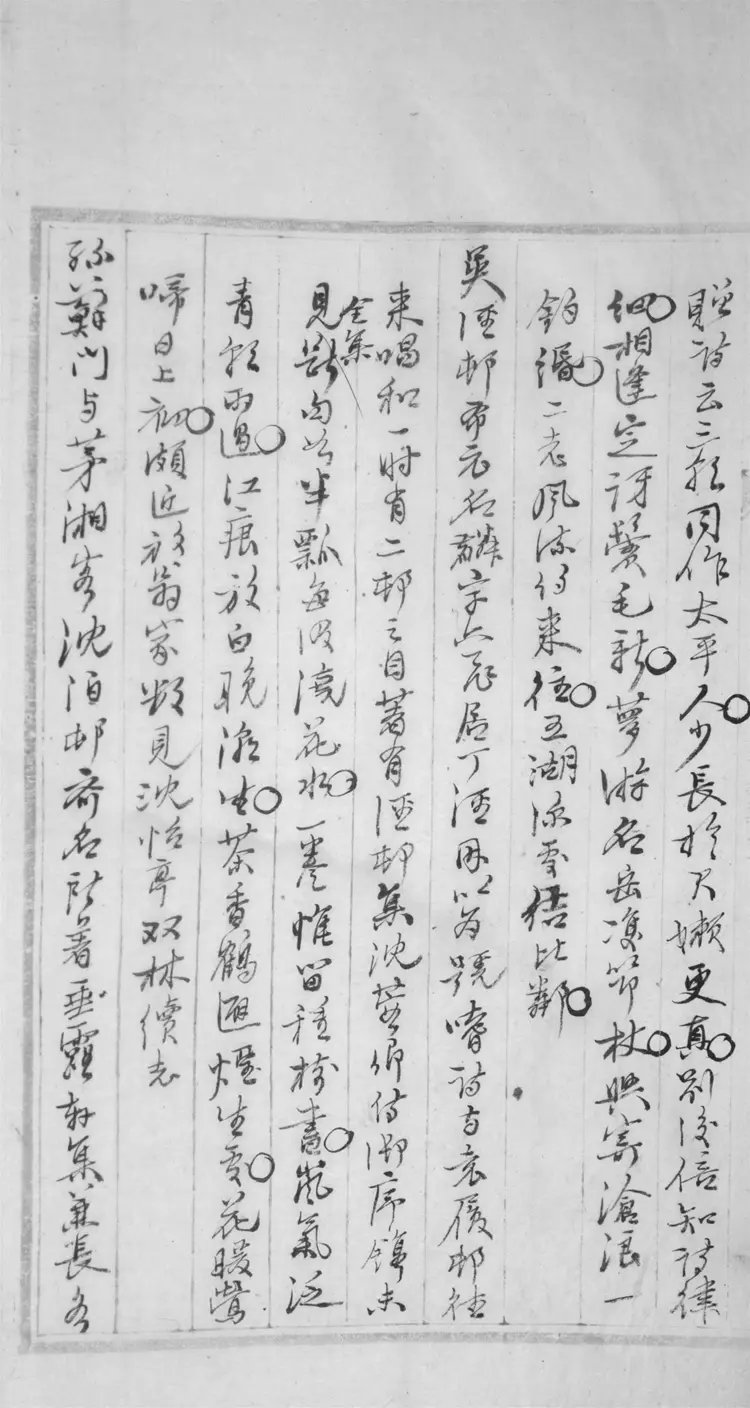 贈詩云三朝同作太平人少長於君嬾更真別後信知詩律
細相逢定訝鬢毛新夢游名岳凌節杖興寄滄浪一
釣緡二老風流仍來往五湖深處結比鄰
吳涇邨布衣名麟字六居丁涇因以為號嗜詩與袁履邨往
來唱和一時有二邨之目著有涇邨集沈侍御序錄未
見全集斷句如半瓢每汲澆花水一卷惟留種樹書嵐氣泛
青朝雨過江痕放白晚潮生茶香鶴避煙生處花暖鶯
啼日上初頗近放翁家數見沈怡亭双林續志
孫鄭門与茅湘客沈泊邨齊名所著垂露軒集兼長各